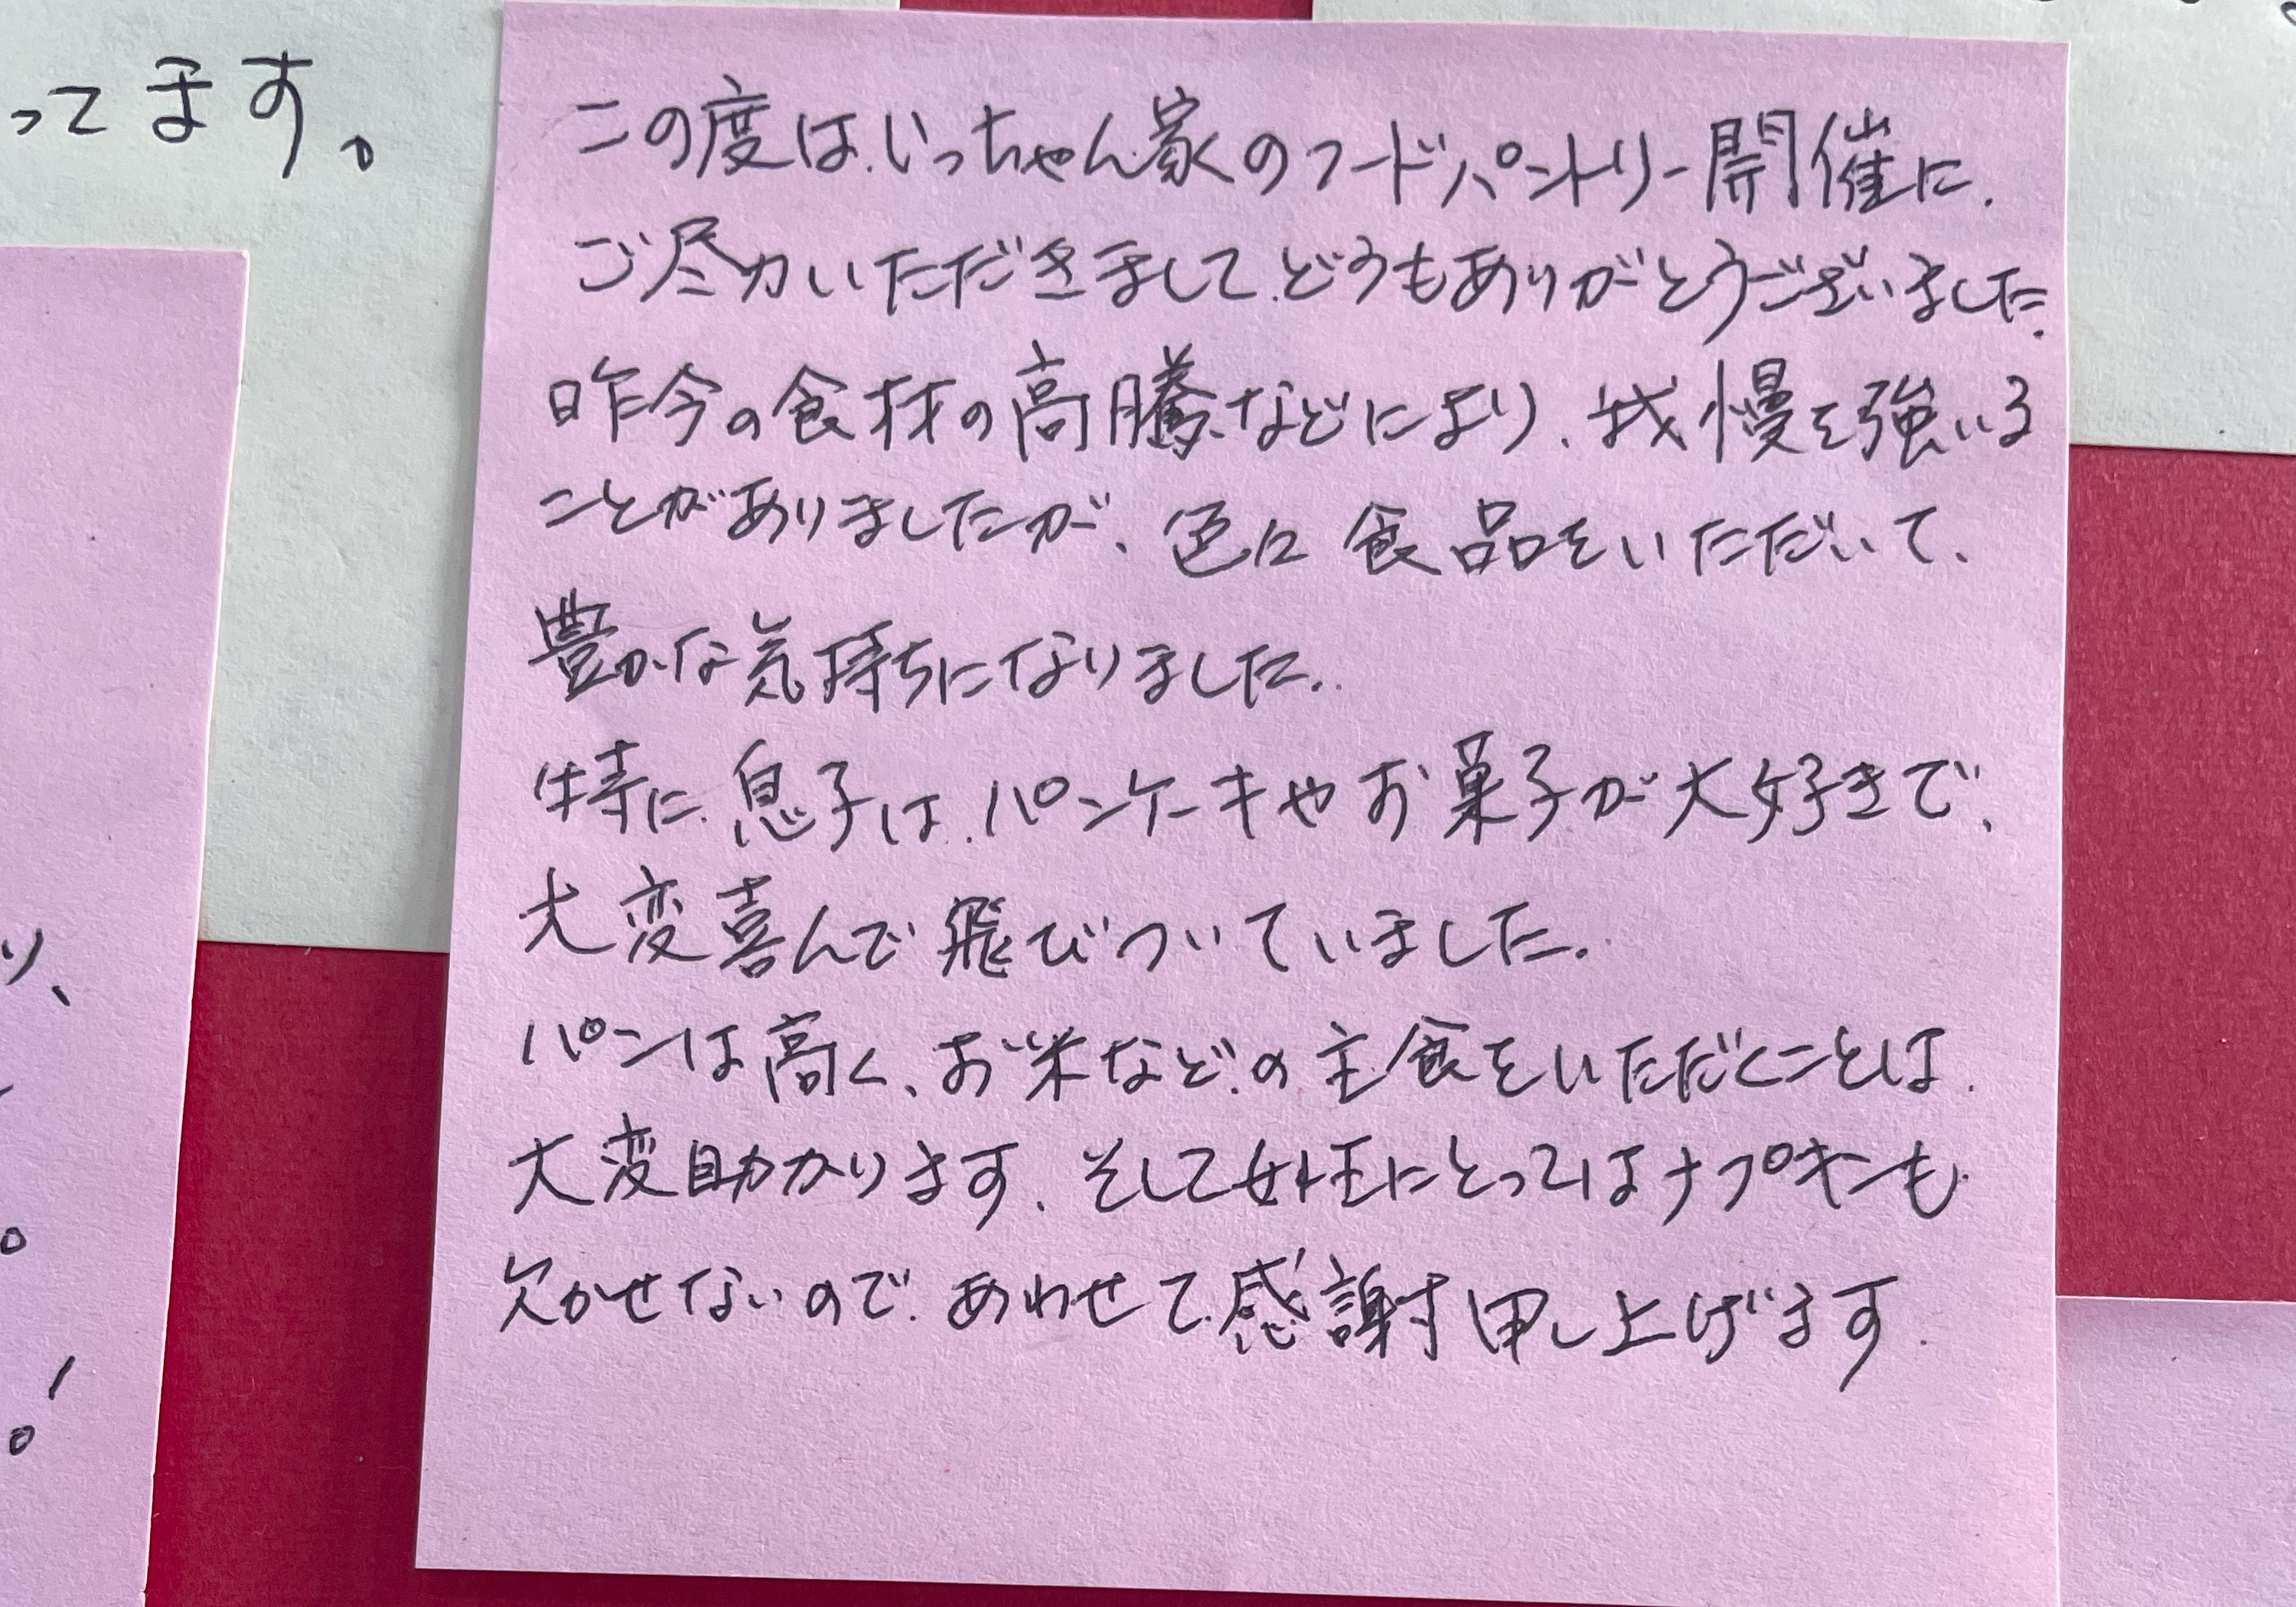 ってます。
この度は、いっちゃん家のフードパントリー開催に、
ご尽力いただきまして、どうもありがとうございました。
昨今の食材の高騰などにより、我慢を強いる
ことがありましたが、色々食品をいただいて、
豊かな気持ちになりました。
特に、息子は、パンケーキやお菓子が大好きで、
大変喜んで飛びついていました。
パンは高く、お米などの主食をいただくことは、
大変助かります。そして女性にとってはナプキンも
欠かせないので、あわせて感謝申し上げます。
り、